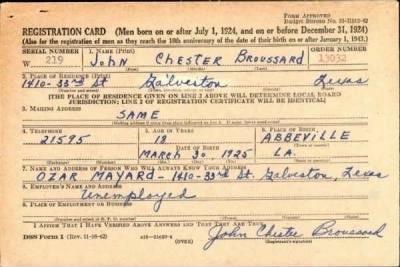 FORM APPROVED
REGISTRATION CARD (Men born on or after July 1, 1924, and on or before December 31, 1924)
(Also for the registration of men as they reach the 18th anniversary of the date of their birth on or after January 1, 1943.)
SERIAL NUMBER 1. NAME (Print) ORDER NUMBER
W 219 John Chester Broussard 13032
2. PLACE OF RESIDENCE (Print)
1410-33rd St Galveston Texas
[THE PLACE OF RESIDENCE GIVEN ON LINE 2 ABOVE WILL DETERMINE LOCAL BOARD
JURISDICTION; LINE 2 OF REGISTRATION CERTIFICATE WILL BE IDENTICAL]
3. MAILING ADDRESS
SAME
4. TELEPHONE 5. AGE IN YEARS 6. PLACE OF BIRTH
21595 18 ABBEVILLE
DATE OF BIRTH
March 30, 1925 LA.
7. NAME AND ADDRESS OF PERSON WHO WILL ALWAYS KNOW YOUR ADDRESS
OZAR MAYARD-1410-33rd St. Galveston, Texas
8. EMPLOYER'S NAME AND ADDRESS
Unemployed
9. PLACE OF EMPLOYMENT OR BUSINESS
I AFFIRM THAT I HAVE VERIFIED ABOVE ANSWERS AND THAT THEY ARE TRUE.
DSS Form 1 (OVER) John Chester Broussard
(Registrant's signature)